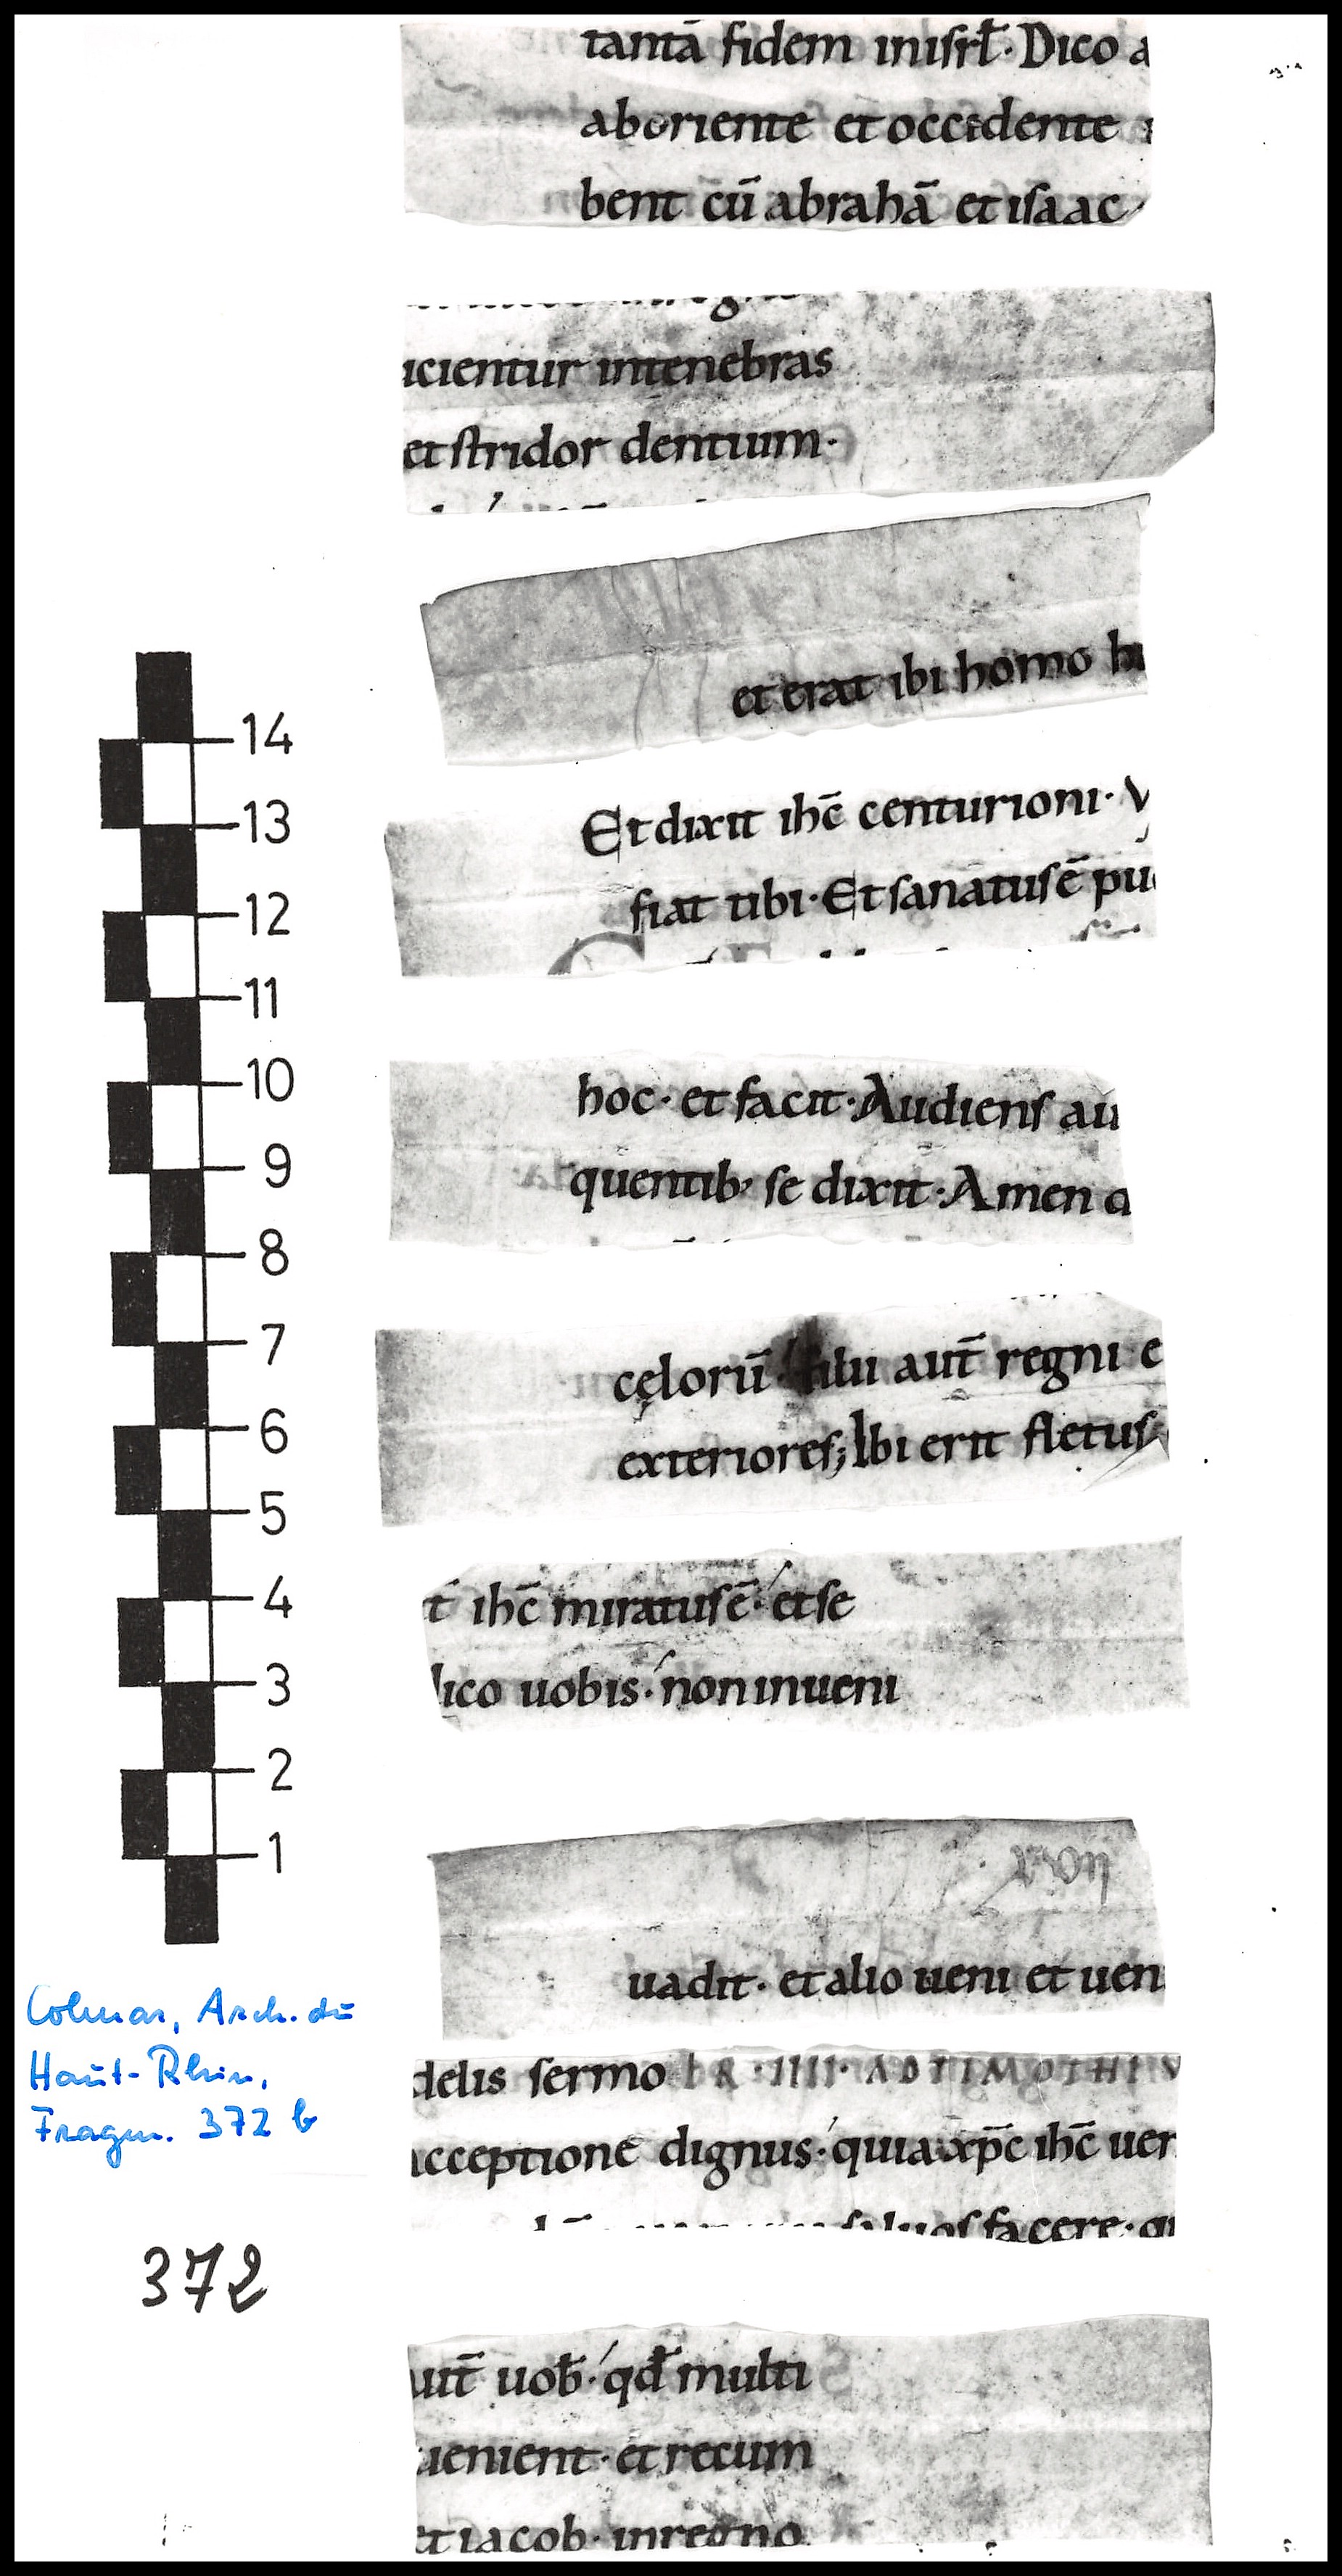 tantā fidem inisrl̄· Dico a
aboriente et occidente
bent cū abrahā et isaac
icientur intenebras
et stridor dentium·
et erat ibi homo
Et dixit ihc̄ centurioni· V
fiat tibi· Et sanatus ē pu
hoc· et facit· Audiens au
quentib; se dixit· Amen
cęlorū· filii aut̄ regni e
exteriores; Ibi erit fletus
t̄ ihc̄ miratus ē· et se
dico uobis· non inueni
uadit· et alio ueni et uen
delis sermo
acceptione dignus· quia xp̄c ihc̄ uen
saluos facere·
aut̄ uob̄· qđ multi
uenient· et recum
et iacob· inregno
14
13
12
11
10
9
8
7
6
5
4
3
2
1
Colmar, Arch. du
Haut-Rhin,
Fragm. 372 b
372